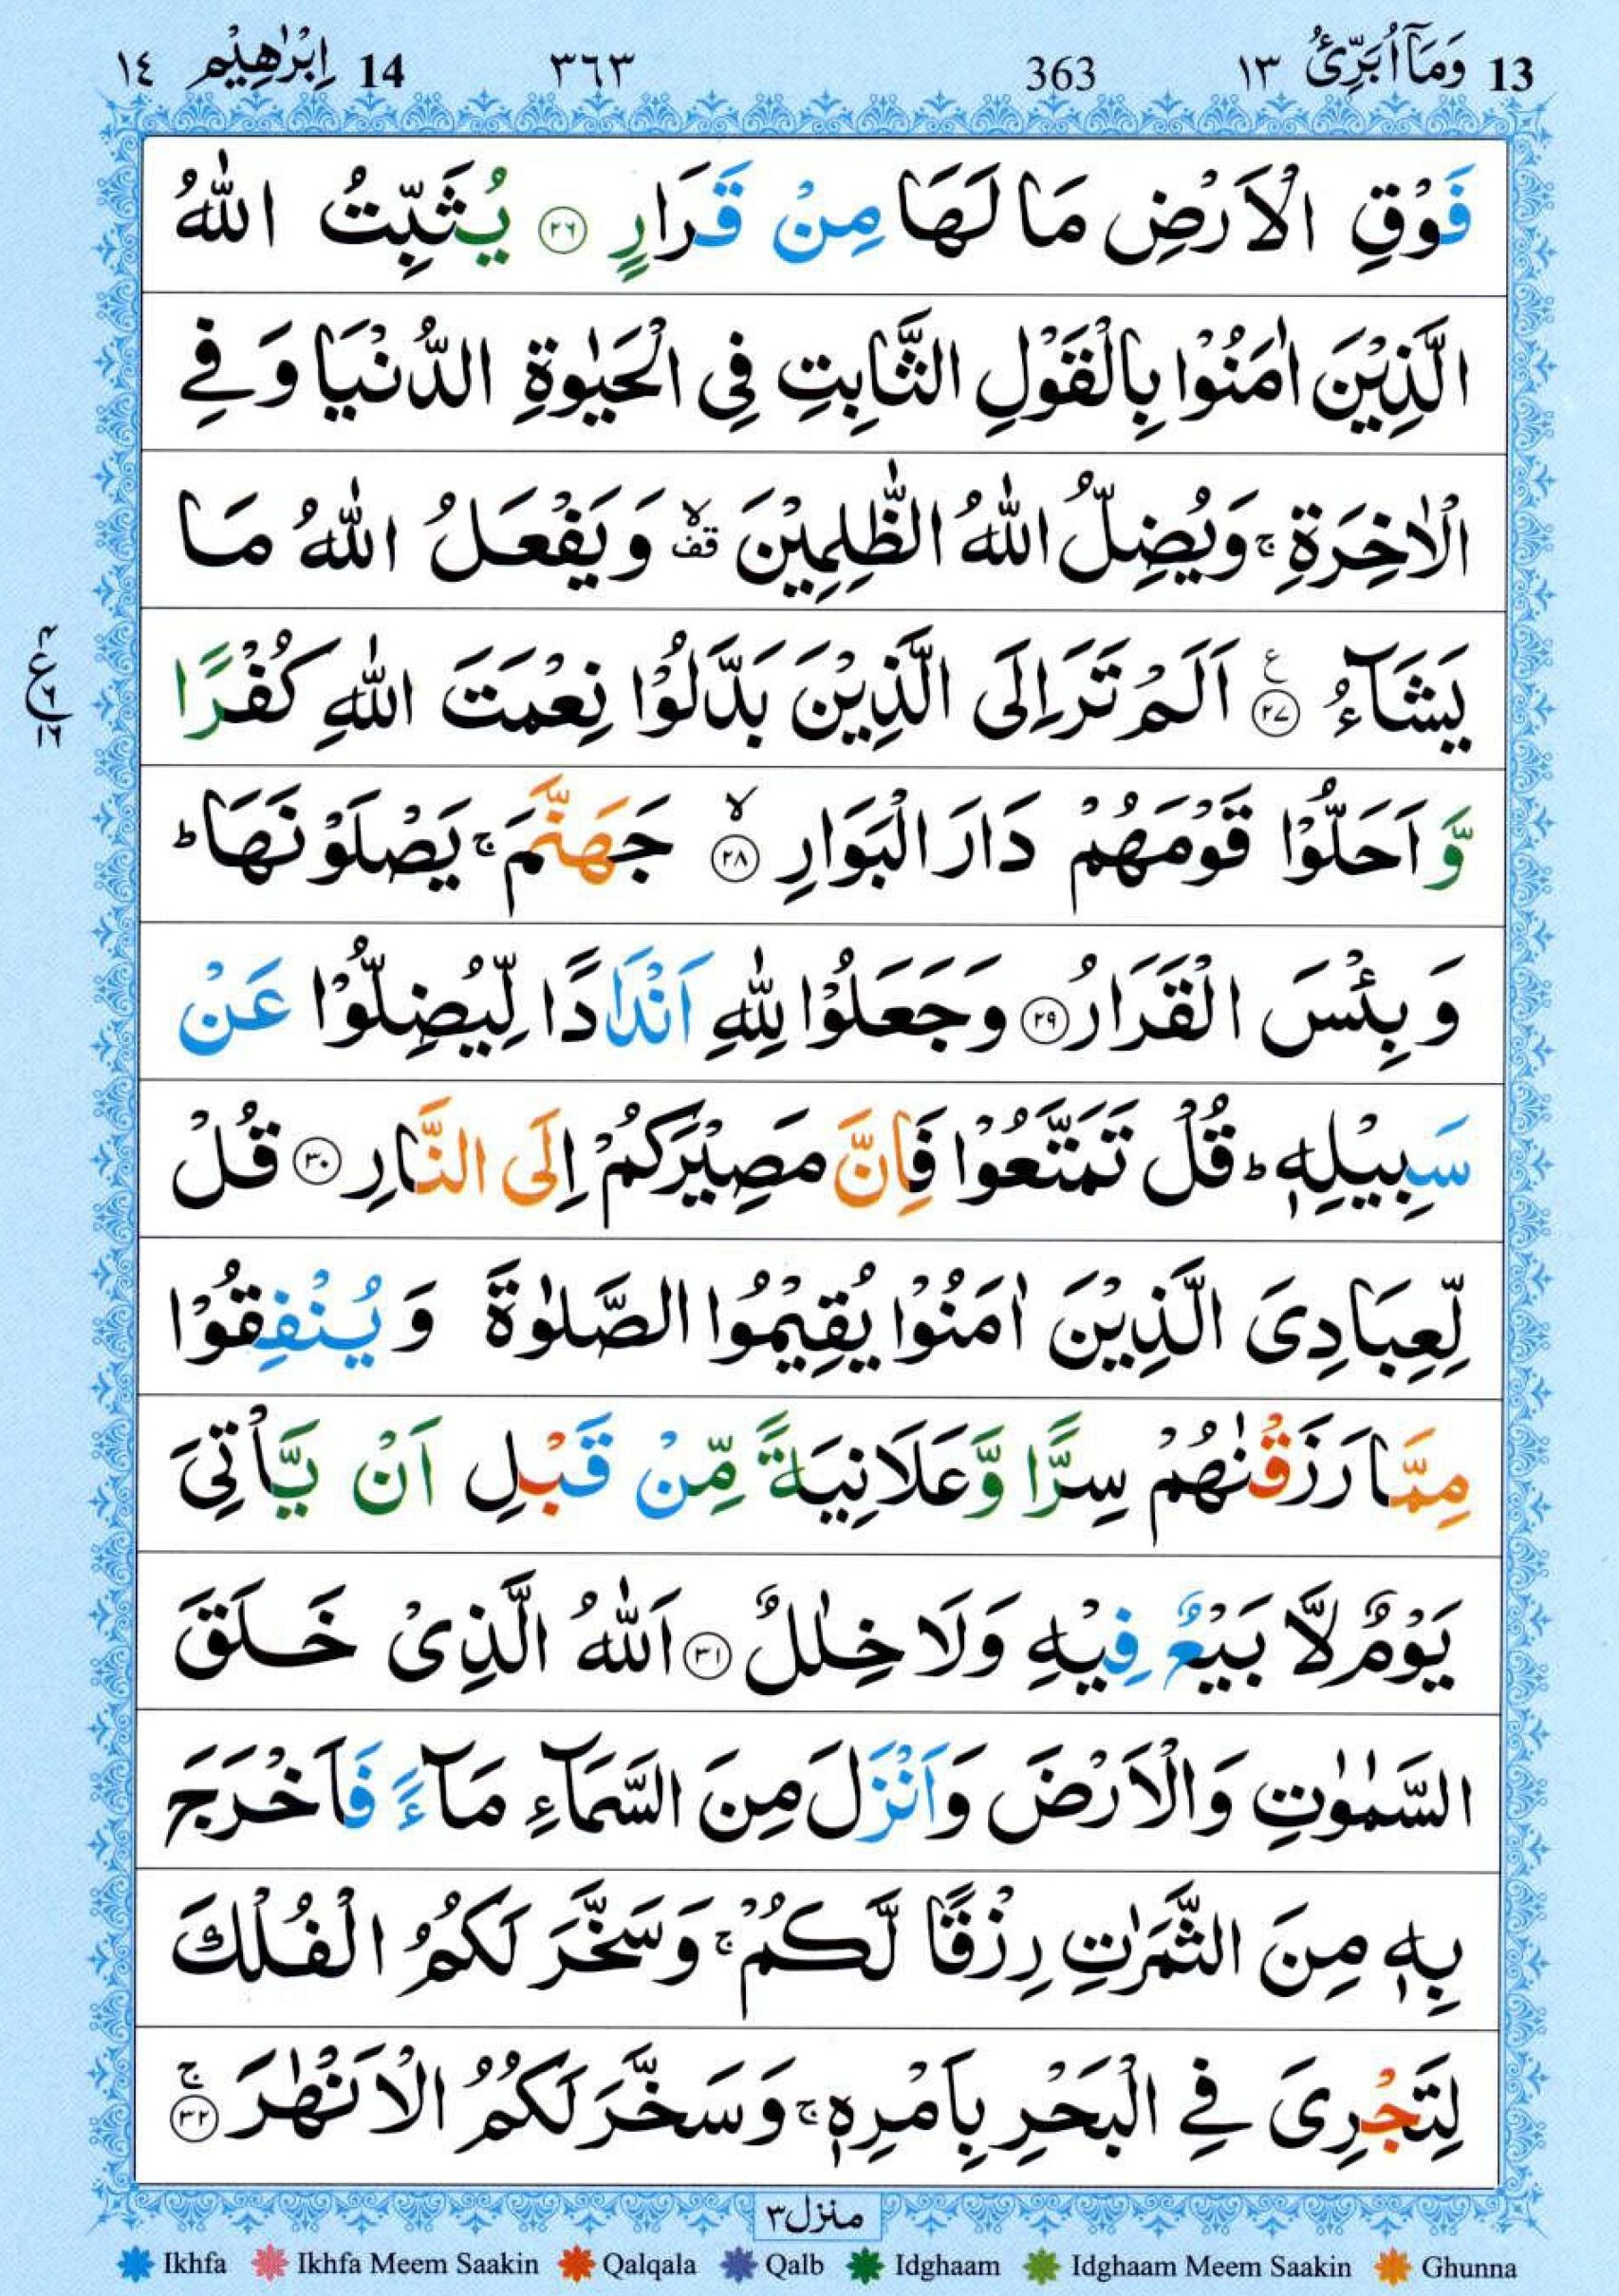 13 وَمَآ اُبَرِّئُ ١٣ 363 ٣٦٣ 14 اِبْرٰهِيْم ١٤
فَوْقِ الْاَرْضِ مَا لَهَا مِنْ قَرَارٍ ۝٢٦ يُثَبِّتُ اللّٰهُ
الَّذِيْنَ اٰمَنُوْا بِالْقَوْلِ الثَّابِتِ فِى الْحَيٰوةِ الدُّنْيَا وَفِى
الْاٰخِرَةِ ۚ وَيُضِلُّ اللّٰهُ الظّٰلِمِيْنَ ۙقف وَيَفْعَلُ اللّٰهُ مَا
يَشَآءُ ۝٢٧ع اَلَمْ تَرَ اِلَى الَّذِيْنَ بَدَّلُوْا نِعْمَتَ اللّٰهِ كُفْرًا
٤ ع ٦ ١٦
وَّاَحَلُّوْا قَوْمَهُمْ دَارَ الْبَوَارِ ۝٢٨ۙ جَهَنَّمَ ۚ يَصْلَوْنَهَا ؕ
وَبِئْسَ الْقَرَارُ ۝٢٩ وَجَعَلُوْا لِلّٰهِ اَنْدَادًا لِّيُضِلُّوْا عَنْ
سَبِيْلِهٖ ؕ قُلْ تَمَتَّعُوْا فَاِنَّ مَصِيْرَكُمْ اِلَى النَّارِ ۝٣٠ قُلْ
لِّعِبَادِىَ الَّذِيْنَ اٰمَنُوْا يُقِيْمُوا الصَّلٰوةَ وَيُنْفِقُوْا
مِمَّا رَزَقْنٰهُمْ سِرًّا وَّعَلَانِيَةً مِّنْ قَبْلِ اَنْ يَّاْتِىَ
يَوْمٌ لَّا بَيْعٌ فِيْهِ وَلَا خِلٰلٌ ۝٣١ اَللّٰهُ الَّذِىْ خَلَقَ
السَّمٰوٰتِ وَالْاَرْضَ وَاَنْزَلَ مِنَ السَّمَآءِ مَآءً فَاَخْرَجَ
بِهٖ مِنَ الثَّمَرٰتِ رِزْقًا لَّكُمْ ۚ وَسَخَّرَ لَكُمُ الْفُلْكَ
لِتَجْرِىَ فِى الْبَحْرِ بِاَمْرِهٖ ۚ وَسَخَّرَ لَكُمُ الْاَنْهٰرَ ۝٣٢ۚ
منزل ٣
Ikhfa Ikhfa Meem Saakin Qalqala Qalb Idghaam Idghaam Meem Saakin Ghunna